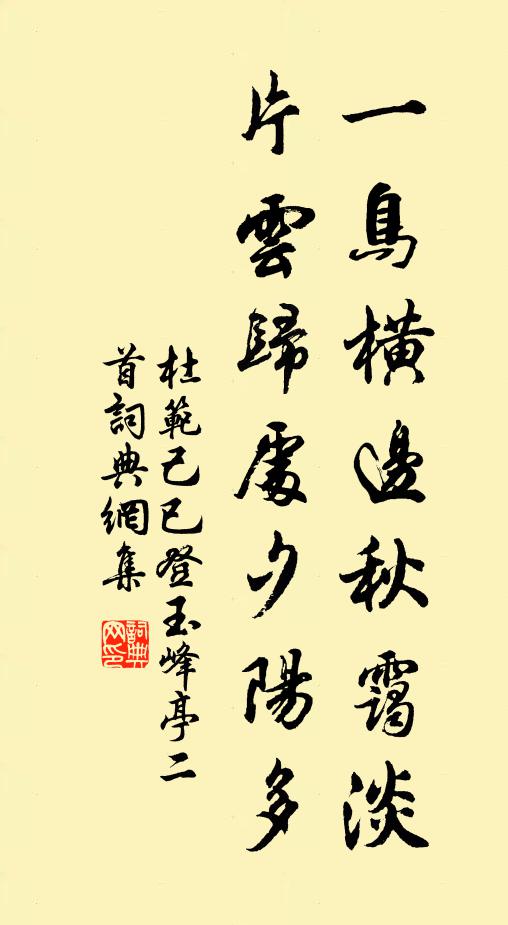 一鳥橫邊秋靄淡
片雲歸處夕陽多
杜範己巳登玉峰亭二
首詞典網集
詞典
网印